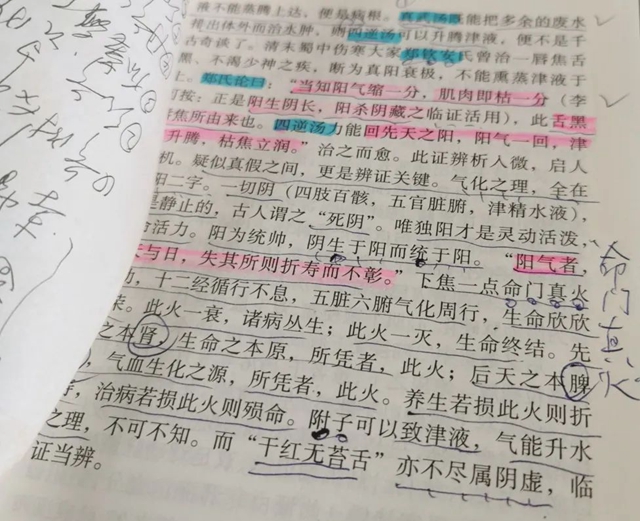 液不能蒸腾上达，便是病根。真武汤既能把多余的废水
排出体外而治水肿，则四逆汤可以升腾津液，便不是千
古奇谈了。清末蜀中伤寒大家郑钦安氏曾治一唇焦舌
黑、不渴少神之疾，断为真阳衰极，不能熏蒸津液于
上。郑氏论曰：“当知阳气缩一分，肌肉即枯一分（李
可按：正是阳生阴长，阳杀阴藏之临证活用），此舌黑
唇焦所由来也。四逆汤力能回先天之阳，阳气一回，津
升腾，枯焦立润。”治之而愈。此证辨析入微，启人
机。疑似真假之间，更是辨证关键。气化之理，全在
阳二字。一切阴（四肢百骸，五官脏腑，津精水液），
是静止的，古人谓之“死阴”。唯独阳才是灵动活泼，
命活力。阳为统帅，阴生于阳而统于阳。“阳气者，
天与日，失其所则折寿而不彰。”下焦一点命门真火
动，十二经循行不息，五脏六腑气化周行，生命欣欣
荣。此火一衰，诸病丛生；此火一灭，生命终结。先
之本肾，生命之本原，所凭者，此火；后天之本脾
，气血生化之源，所凭者，此火。养生若损此火则折
，治病若损此火则殒命。附子可以致津液，气能升水
之理，不可不知。而“干红无苔舌”亦不尽属阴虚，临
证当辨。
命门真火